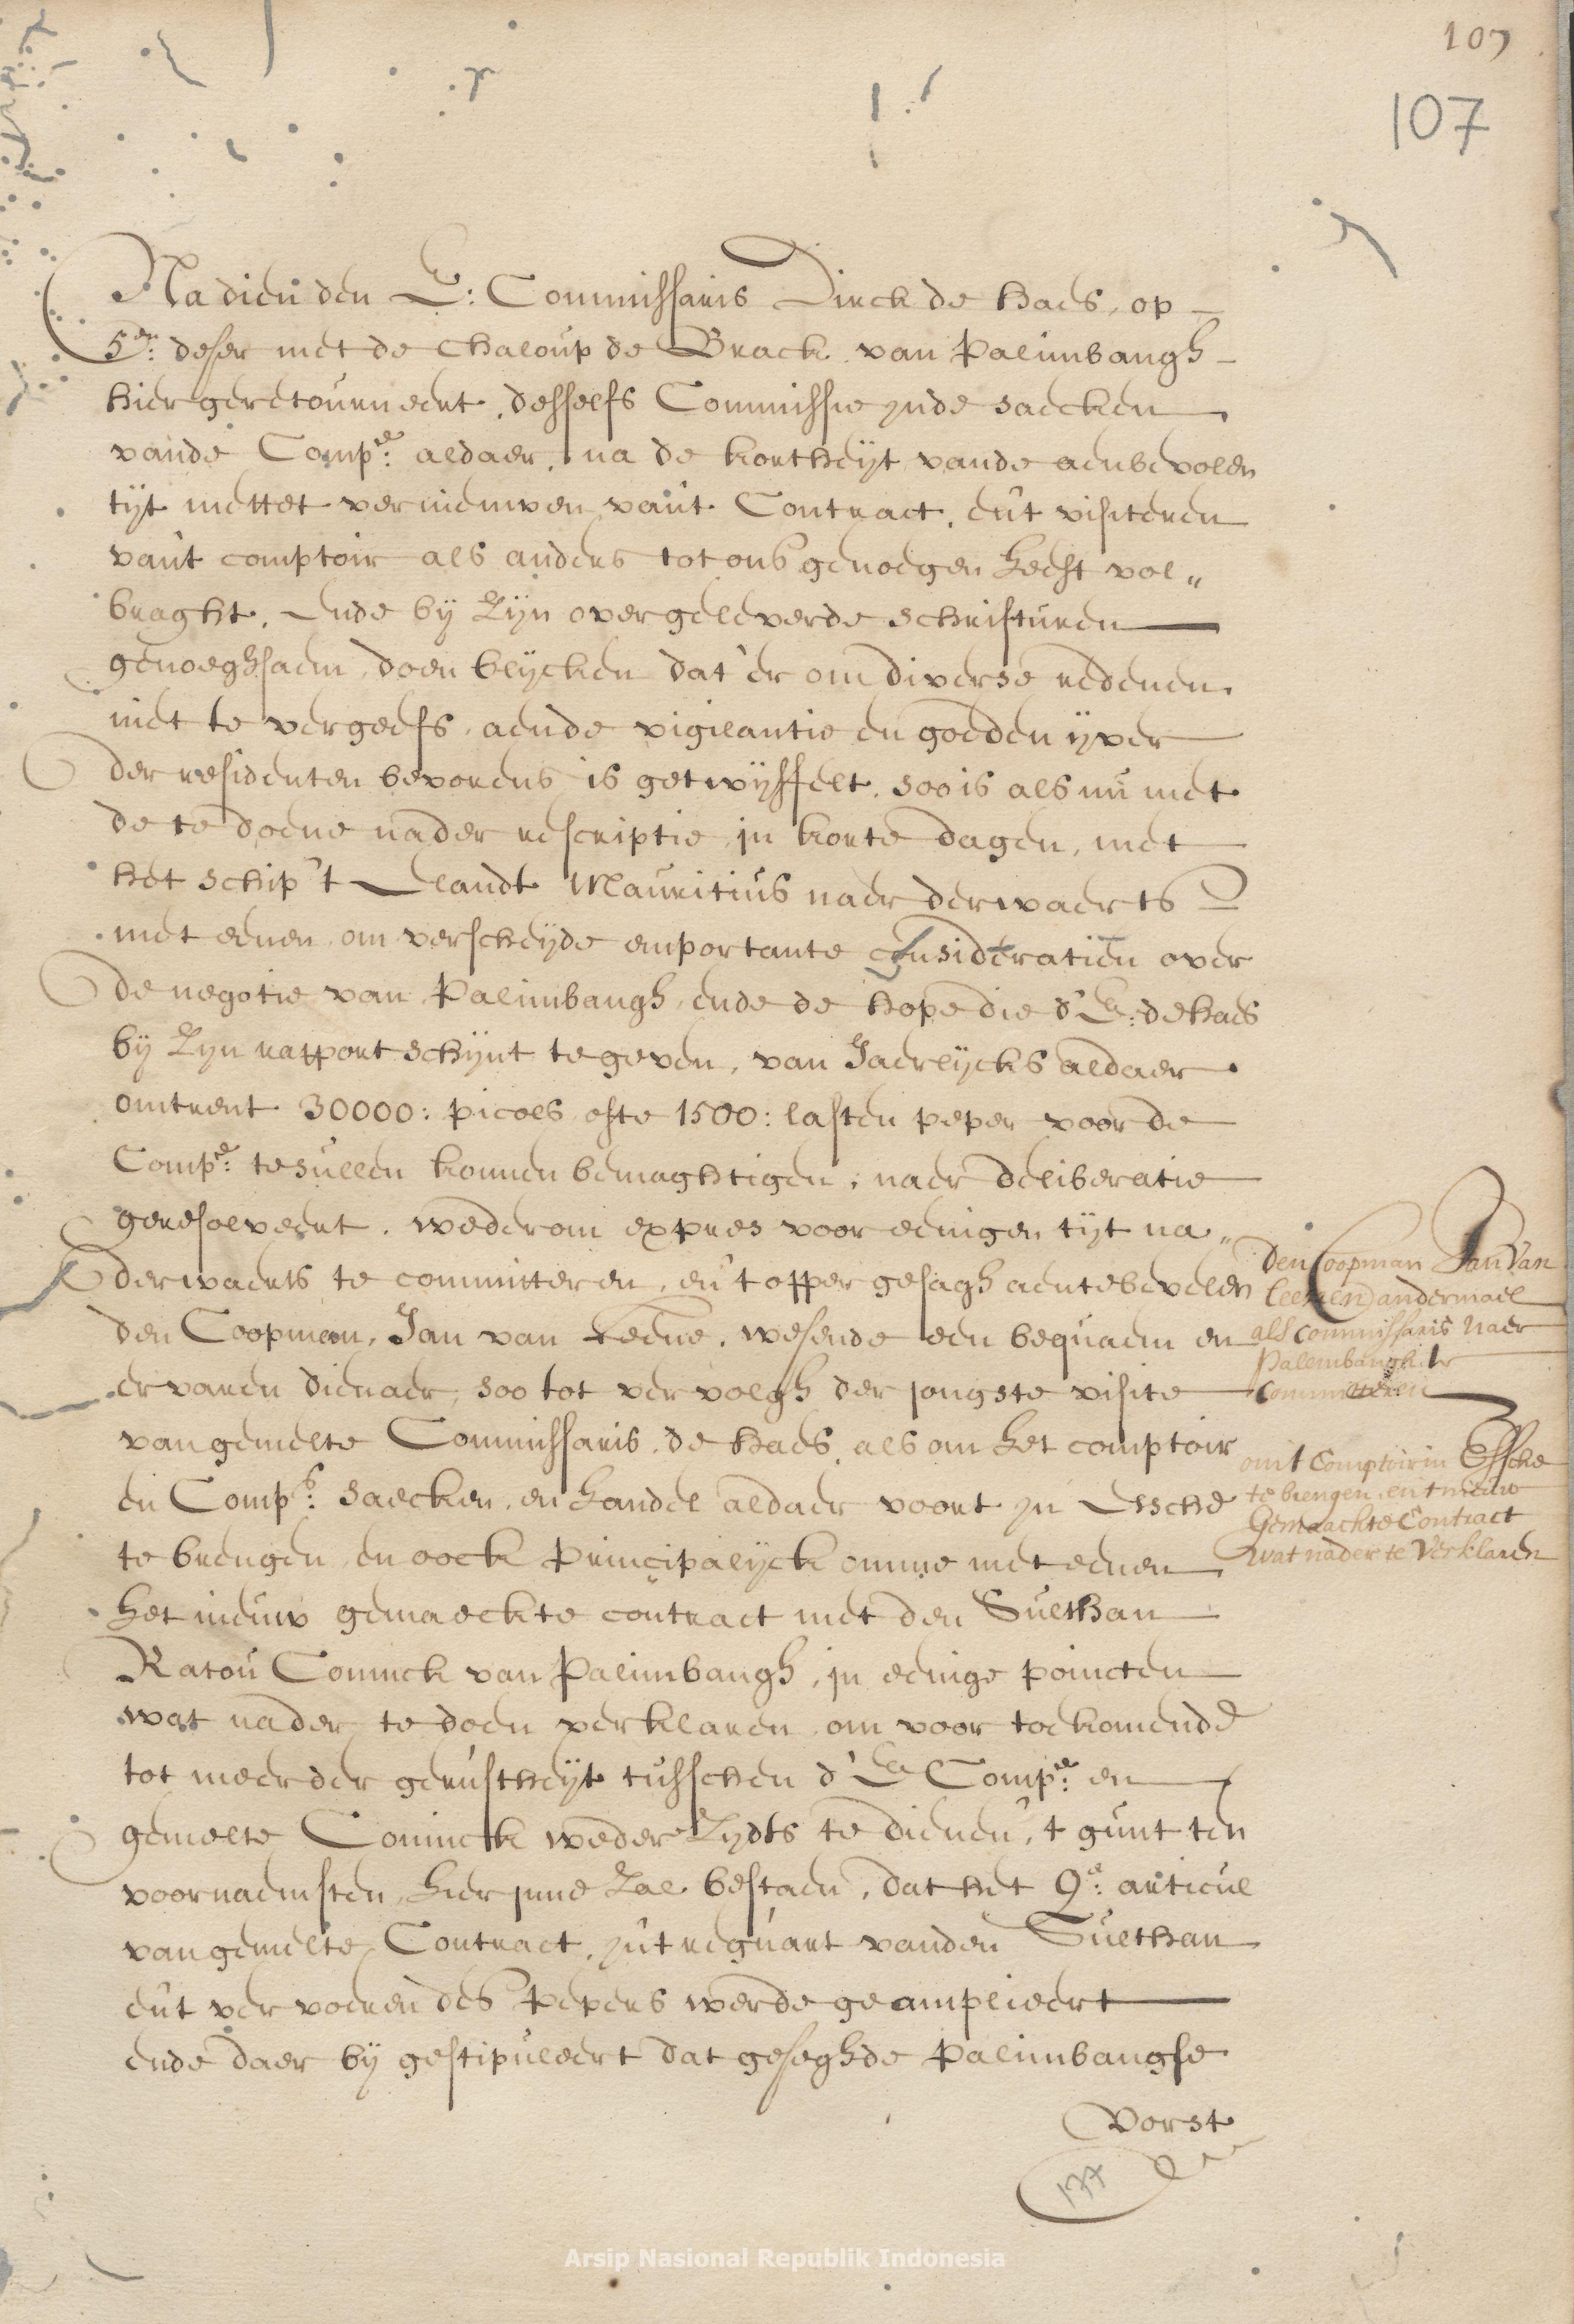 107
107
Na dien den E: Commissaris Dirck de Haes, op
5en: deser met de chaloup de Brack van Palimbangh
hier geretourneert, desselfs Commissie inde saecken
vande Compe: aldaer, na de kortheijt vande aenbevolen
tijt mettet vernieuwen vant Contract, ent visiteren
vant comptoir als anders tot ons genoegen heeft vol„
braght, ende bij zijn overgeleverde schrifturen
genoeghsaem doen blijcken dat'er om diverse redenen
niet te vergeefs aende vigilantie en goeden ijver
der residenten bevorens is getwijffelt, soo is als nu met
de te doene nader rescriptie in korte dagen, met
het schip 't Landt Mauritius naer derwaerts
met eenen om verscheijde emportante consideratien over
de negotie van Palimbangh, ende de hope die d'E: de Haes
bij zijn rapport schijnt te geven, van Jaerlijcks aldaer
omtrent 30000: picols ofte 1500: lasten peper voor de
Compe: te sullen konnen bemaghtigen, naer deliberatie
geresolveert, wederom expres voor eenigen tijt na„
derwaerts te committeren, en 't opper gesagh aen te bevelen
den Coopman, Jan van Leene, wesende een bequaem en
ervaren dienaer, soo tot vervolgh der jongste visite
van gemelte Commissaris de Haes, als om het comptoir
en Comps: saecken, en handel aldaer voort in Essche
te brengen, en oock principalijck omme met eenen
het nieuw gemaeckte contract met den Sulthan
Ratou Coninck van Palimbangh, in eenige poincten
wat nader te doen verklaren om voor toekomende
tot meerder gerustheijt tusschen d'E Compe: en
gemelte Coninck weder zijdts te dienen, t gunt ten
voornaemsten hier inne zal bestaen, dat het 9e: articul
van gemelte Contract, int reguart vanden Sulthan
ent vervoeren des pepers werde geamplieert
ende daer bij gestipuleert dat geseghde Palimbangse
Vorst
den Coopman Jan Van
Leenen andermael
als commissaris naer
Palembangh te
committeren
om t Comptoir in Essche
te brengen, en t nieuw
Gemaackte Contract
wat nader te Verklaren
177
Arsip Nasional Republik Indonesia